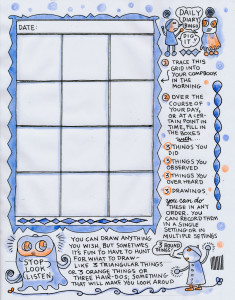 DAILY
DIARY
BINGO
DIG
IT!
DATE:
1 TRACE THIS
GRID INTO
YOUR COMPBOOK
IN THE
MORNING
2 OVER THE
COURSE OF
YOUR DAY,
OR AT A CER-
TAIN POINT IN
TIME, FILL IN
THE BOXES
with
3 THINGS YOU
DID
3 THINGS YOU
OBSERVED
3 THINGS YOU
OVERHEARD
3 DRAWINGS
you can do
THESE IN ANY
ORDER. YOU
CAN RECORD THEM
IN A SINGLE
SETTING OR IN
MULTIPLE SETTINGS
STOP
LOOK
LISTEN
YOU CAN DRAW ANYTHING
YOU WISH, BUT SOMETIMES
IT'S FUN TO HAVE TO HUNT
FOR WHAT TO DRAW—
LIKE 3 TRIANGULAR THINGS
OR 3 ORANGE THINGS OR
THREE HAIR-DOS, SOMETHING
THAT WILL MAKE YOU LOOK AROUD
3 ROUND
THINGS